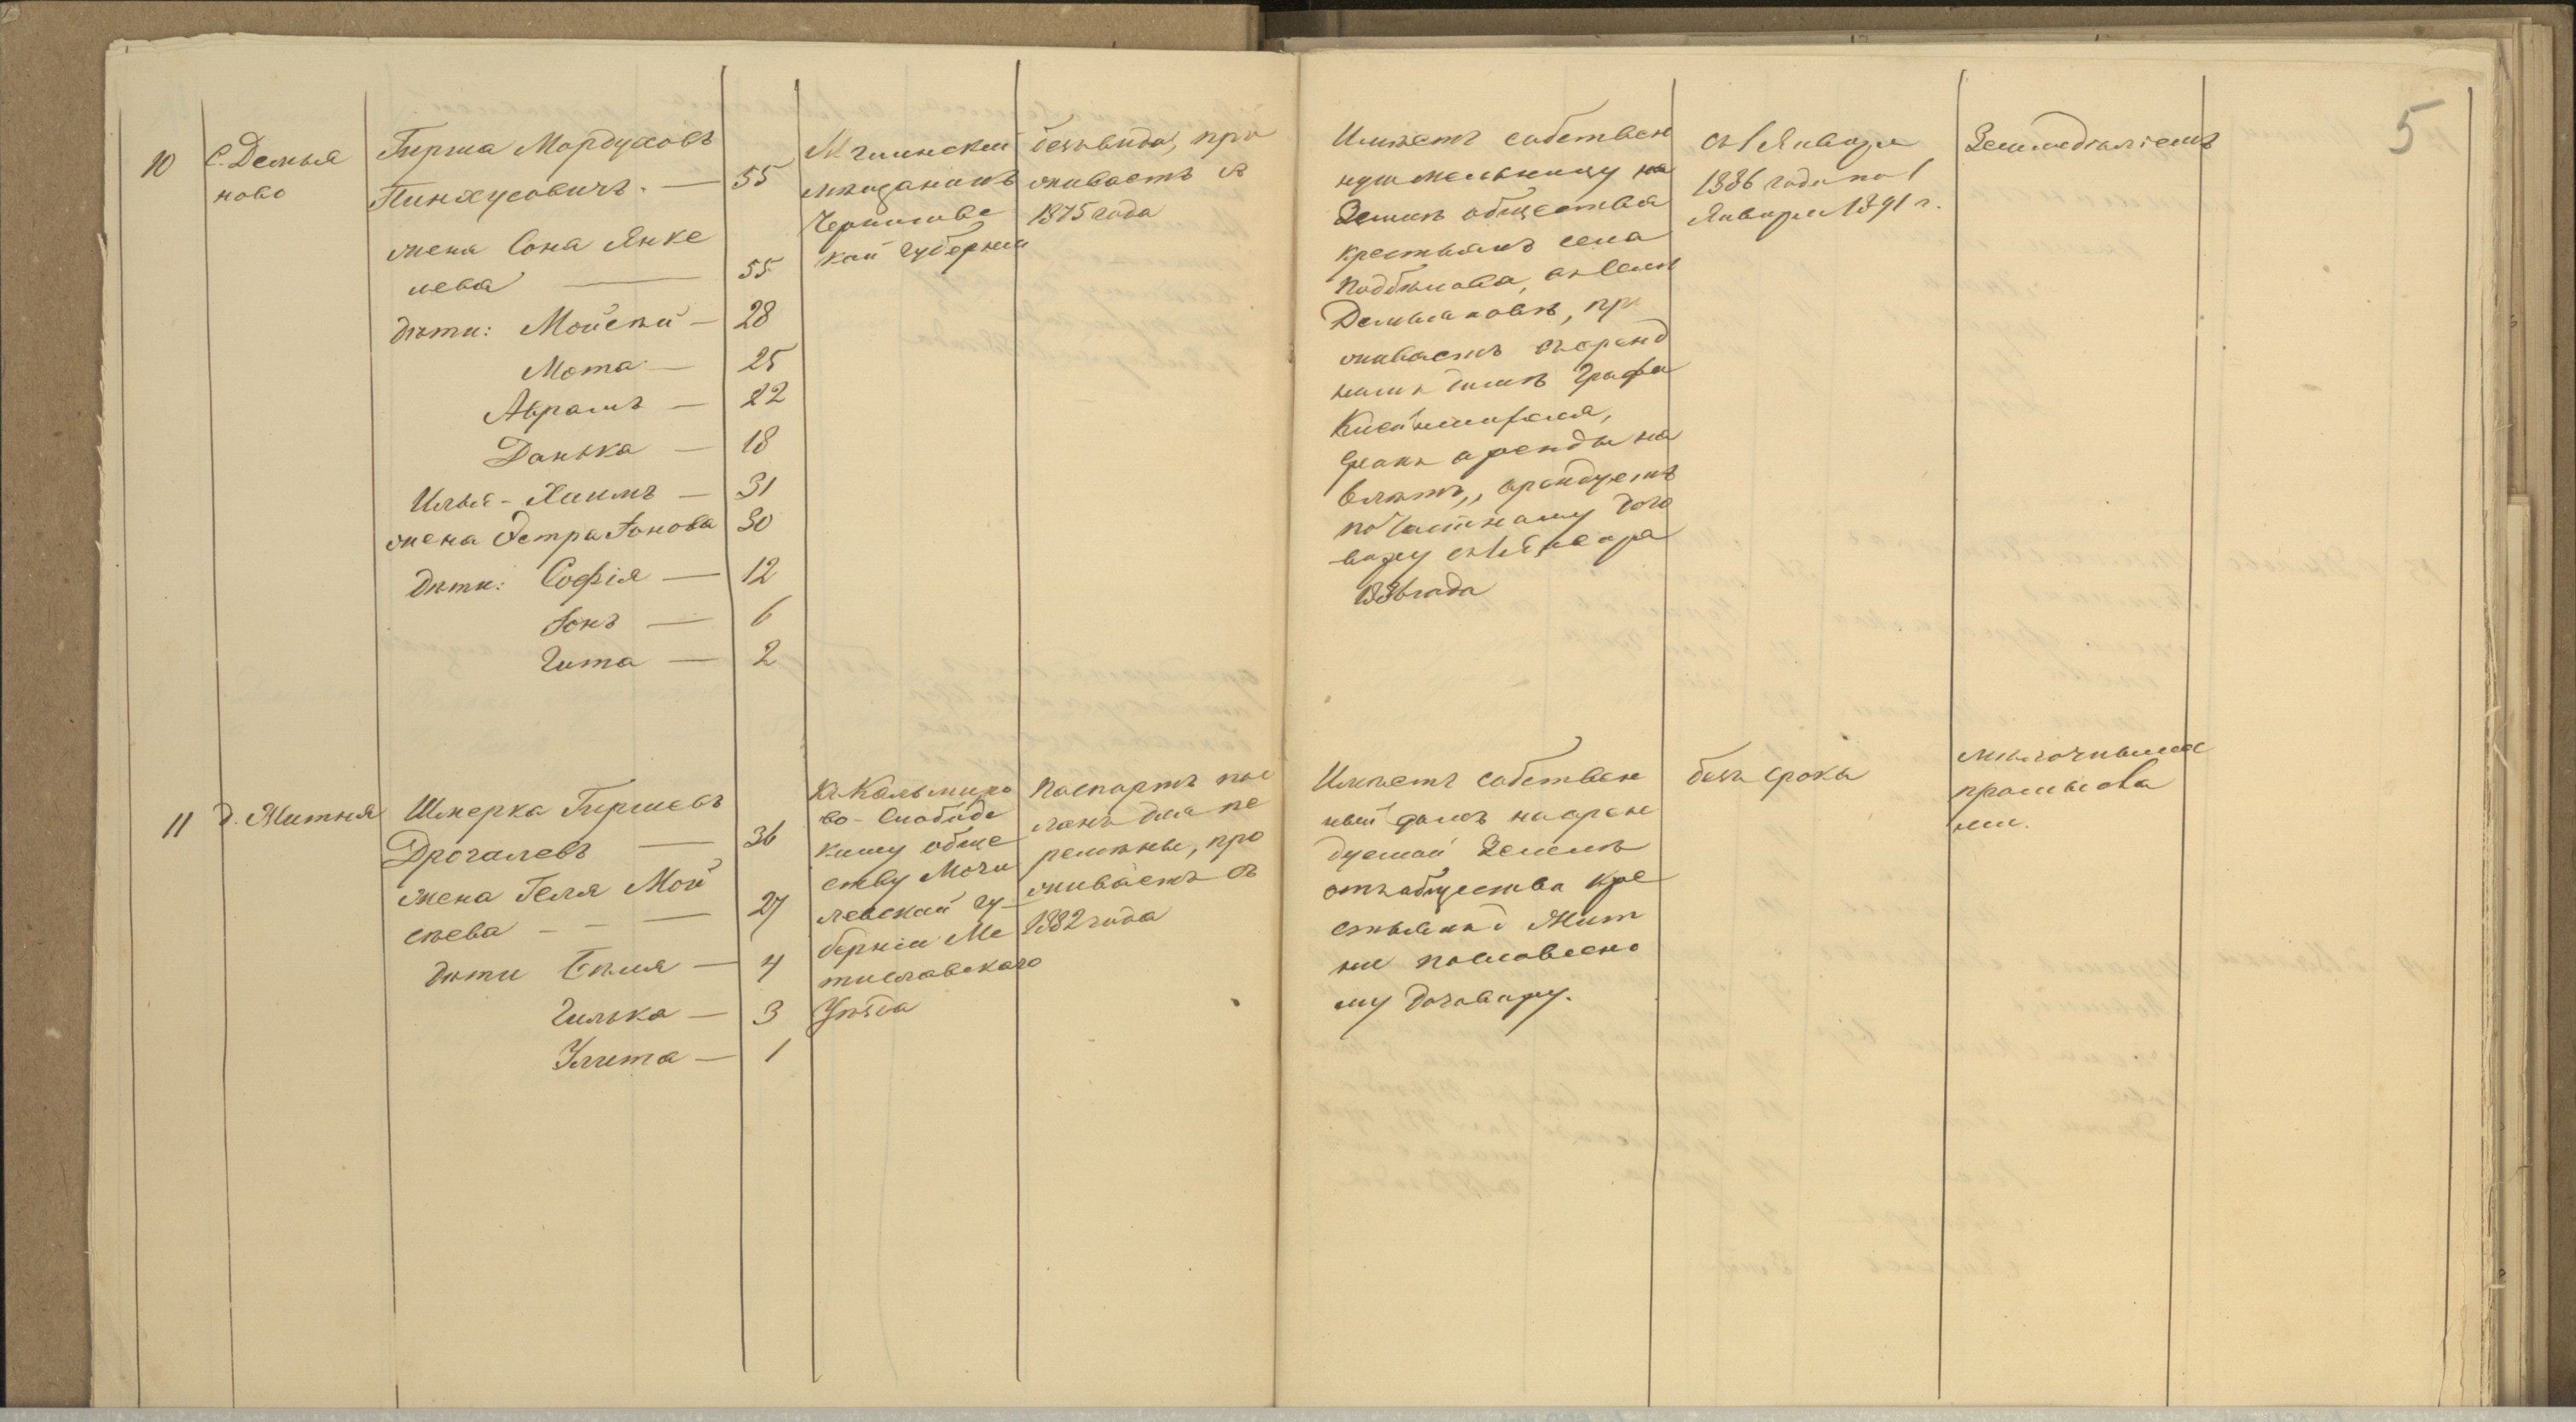 5
10
с. Демья
ново
Гирша Мордуховъ
Пинхусовичъ. — 55
жена Сона Янке
лева — 55
дѣти: Мойсѣй — 28
Мота — 25
Абрамъ — 22
Данька — 18
Илья-Хаимъ — 31
жена Эстра Іонова 30
дѣти: Софія — 12
Іонъ — 6
Гита — 2
Мглинскій
мѣщанинъ
Черниговс
кой губерніи
безъ вида, про
живаетъ съ
1875 года
Имѣетъ собствен
ную мельницу на
Землѣ общества
крестьянъ села
въ селѣ
Демьяновѣ, про
живаетъ
домѣ Графа
срокъ аренды на
арендуетъ
по частному дого
вору съ 1 Января
1886 года
съ 1 Января
1886 года по 1
Января 1891 г.
Земледѣліемъ
11
д. Житня
Шмерка Гиршевъ
Драгалевъ — 36
жена Геля Мой
сѣева — — — 27
дѣти Бѣля — 4
Гилька — 3
Улита — 1
Къ Кальмиро
во-Слободс
кому обще
ству Моги
левской гу-
берніи Мс
тиславскаго
Уѣзда
Паспортъ пос
ланъ для пе
ремѣны, про
живаетъ съ
1882 года
Имѣетъ собствен
ный домъ на арен
дуемой Землѣ
отъ общества кре
стьянъ д Жит
ни по словесно
му договору.
безъ срока
мѣлочнымъ
промысло